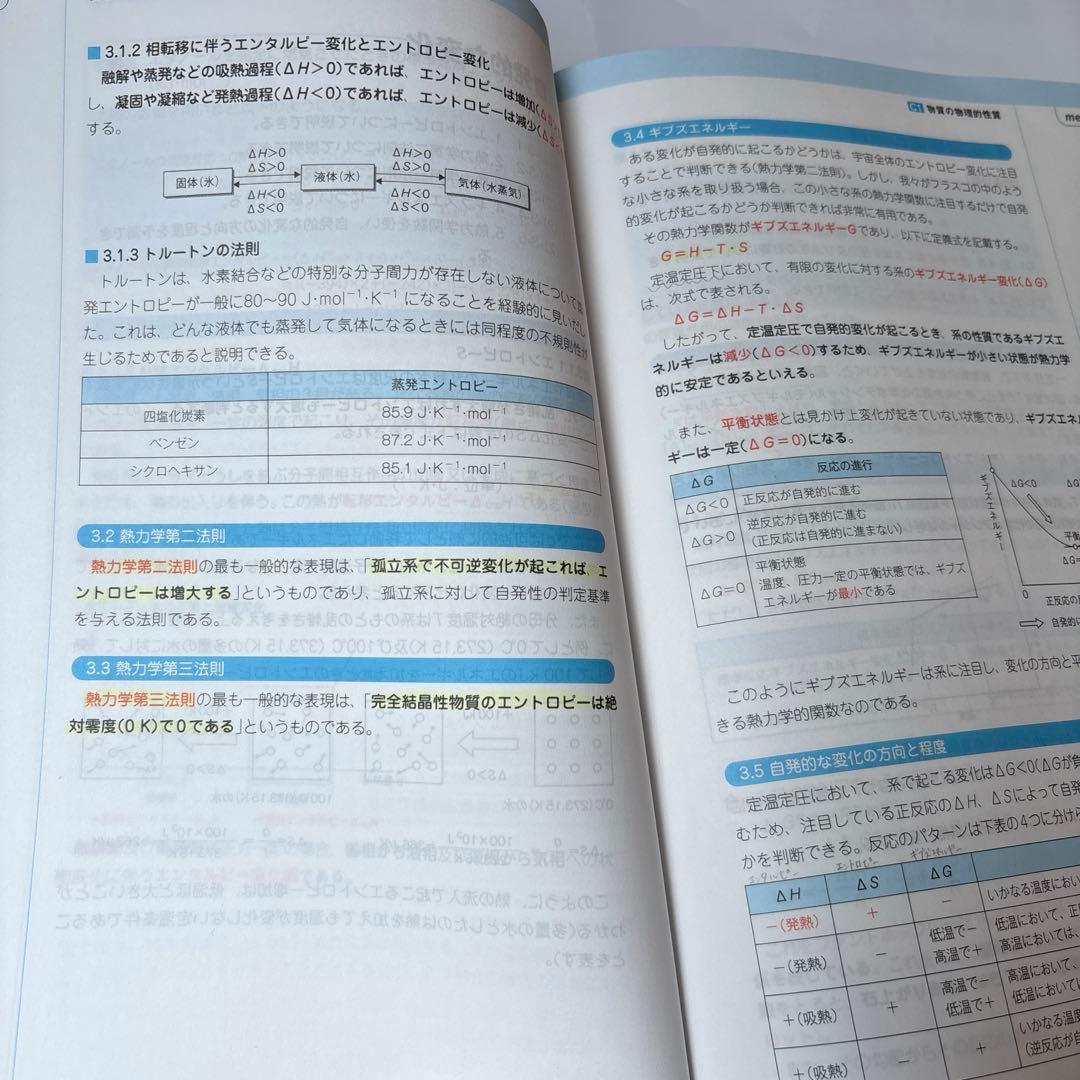 3.1.2 相転移に伴うエンタルピー変化とエントロピー変化
融解や蒸発などの吸熱過程(ΔH>0)であれば、エントロピーは増加(ΔS>
し、凝固や凝縮など発熱過程(ΔH<0)であれば、エントロピーは減少(ΔS<
する。
ΔH>0 ΔH>0
ΔS>0 ΔS>0
固体(氷) 液体(水) 気体(水蒸気)
ΔH<0 ΔH<0
ΔS<0 ΔS<0
3.1.3 トルートンの法則
トルートンは、水素結合などの特別な分子間力が存在しない液体について
発エントロピーが一般に80〜90 J・mol⁻¹・K⁻¹ になることを経験的に見いだし
た。これは、どんな液体でも蒸発して気体になるときには同程度の不規則性が
生じるためであると説明できる。
蒸発エントロピー
四塩化炭素 85.9 J・K⁻¹・mol⁻¹
ベンゼン 87.2 J・K⁻¹・mol⁻¹
シクロヘキサン 85.1 J・K⁻¹・mol⁻¹
3.2 熱力学第二法則
熱力学第二法則の最も一般的な表現は、「孤立系で不可逆変化が起これば、エ
ントロピーは増大する」というものであり、孤立系に対して自発性の判定基準
を与える法則である。
3.3 熱力学第三法則
熱力学第三法則の最も一般的な表現は、「完全結晶性物質のエントロピーは絶
対零度(0 K)で0である」というものである。
C1 物質の物理的性質
me
3.4 ギブズエネルギー
ある変化が自発的に起こるかどうかは、宇宙全体のエントロピー変化に注目
することで判断できる(熱力学第二法則)。しかし、我々がフラスコの中のよう
な小さな系を取り扱う場合、この小さな系の熱力学関数に注目するだけで自発
的変化が起こるかどうか判断できれば非常に有用である。
その熱力学関数がギブズエネルギーGであり、以下に定義式を記載する。
G=H−T・S
定温定圧下において、有限の変化に対する系のギブズエネルギー変化(ΔG)
は、次式で表される。
ΔG=ΔH−T・ΔS
したがって、定温定圧で自発的変化が起こるとき、系の性質であるギブズエ
ネルギーは減少(ΔG<0)するため、ギブズエネルギーが小さい状態が熱力学
的に安定であるといえる。
また、平衡状態とは見かけ上変化が起きていない状態であり、ギブズエネル
ギーは一定(ΔG=0)になる。
ΔG 反応の進行
ΔG<0 正反応が自発的に進む
ΔG>0 逆反応が自発的に進む
(正反応は自発的に進まない)
ΔG=0 平衡状態
温度、圧力一定の平衡状態では、ギブズ
エネルギーが最小である
ギブズエネルギー
ΔG<0 ΔG
平衡
ΔG=
0 正反応の
自発的に
このようにギブズエネルギーは系に注目し、変化の方向と平
きる熱力学的関数なのである。
3.5 自発的な変化の方向と程度
定温定圧において、系で起こる変化はΔG<0(ΔGが負
むため、注目している正反応のΔH、ΔSによって自発
かを判断できる。反応のパターンは下表の4つに分けら
エンタルピー エントロピー ギブズエネルギー
ΔH ΔS ΔG
−(発熱) + − いかなる温度におい
−(発熱) − 低温で− 高温で+ 低温において、正
高温においては、
+(吸熱) + 高温で− 低温で+ 高温において、
低温においては
+(吸熱) − + いかなる温度
(逆反応が自